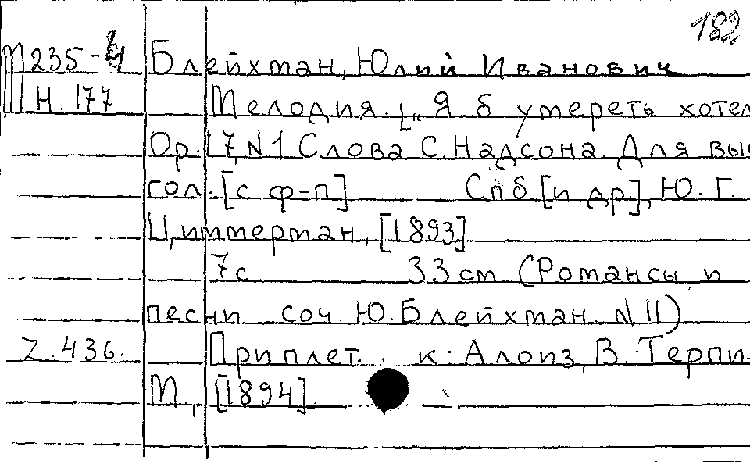 182
М235-4 Блейхман, Юлий Иванович
Ш Н. 177 Мелодия. [„Я б умереть хотел
Op. 17, N1 Слова С. Надсона. Для выс
гол. [с ф-п] Спб [и др], Ю. Г.
Циммерман, [1893]
7с 33 см (Романсы и
песни соч Ю. Блейхман. N 11)
Z. 436. Приплет. к: Алоиз, В. Терпи
М., [1894]